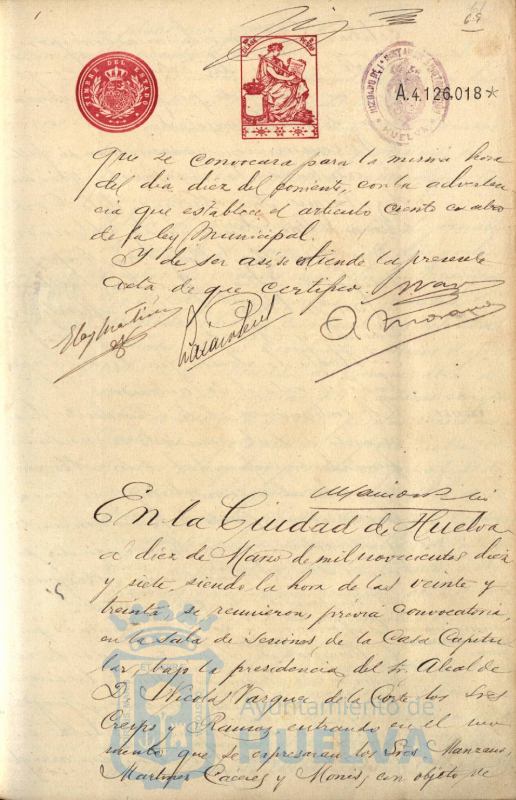 69
TIMBRE DEL ESTADO
HUELVA
A.4.126.018*
que se convocara para la misma hora
del dia diez del corriente, con la adverten
cia que establece el articulo ciento cuatro
de la ley Municipal.
Y de ser asi se extiende la presente
acta de que certifico
En la Ciudad de Huelva
á diez de Marzo de mil novecientos diez
y siete, siendo la hora de las veinte y
treinta, se reunieron, previa convocatoria,
en la Sala de Sesiones de la Casa Capitu
lar, bajo la presidencia del Sr. Alcalde
D. Nicolas Vazquez de la Corte, los Sres
Crespo y Ramos, entrando en el mo
mento que se expresaran los Sres Manzano,
Martinez Caceres y Mones, con objeto de
Ayuntamiento de
HUELVA